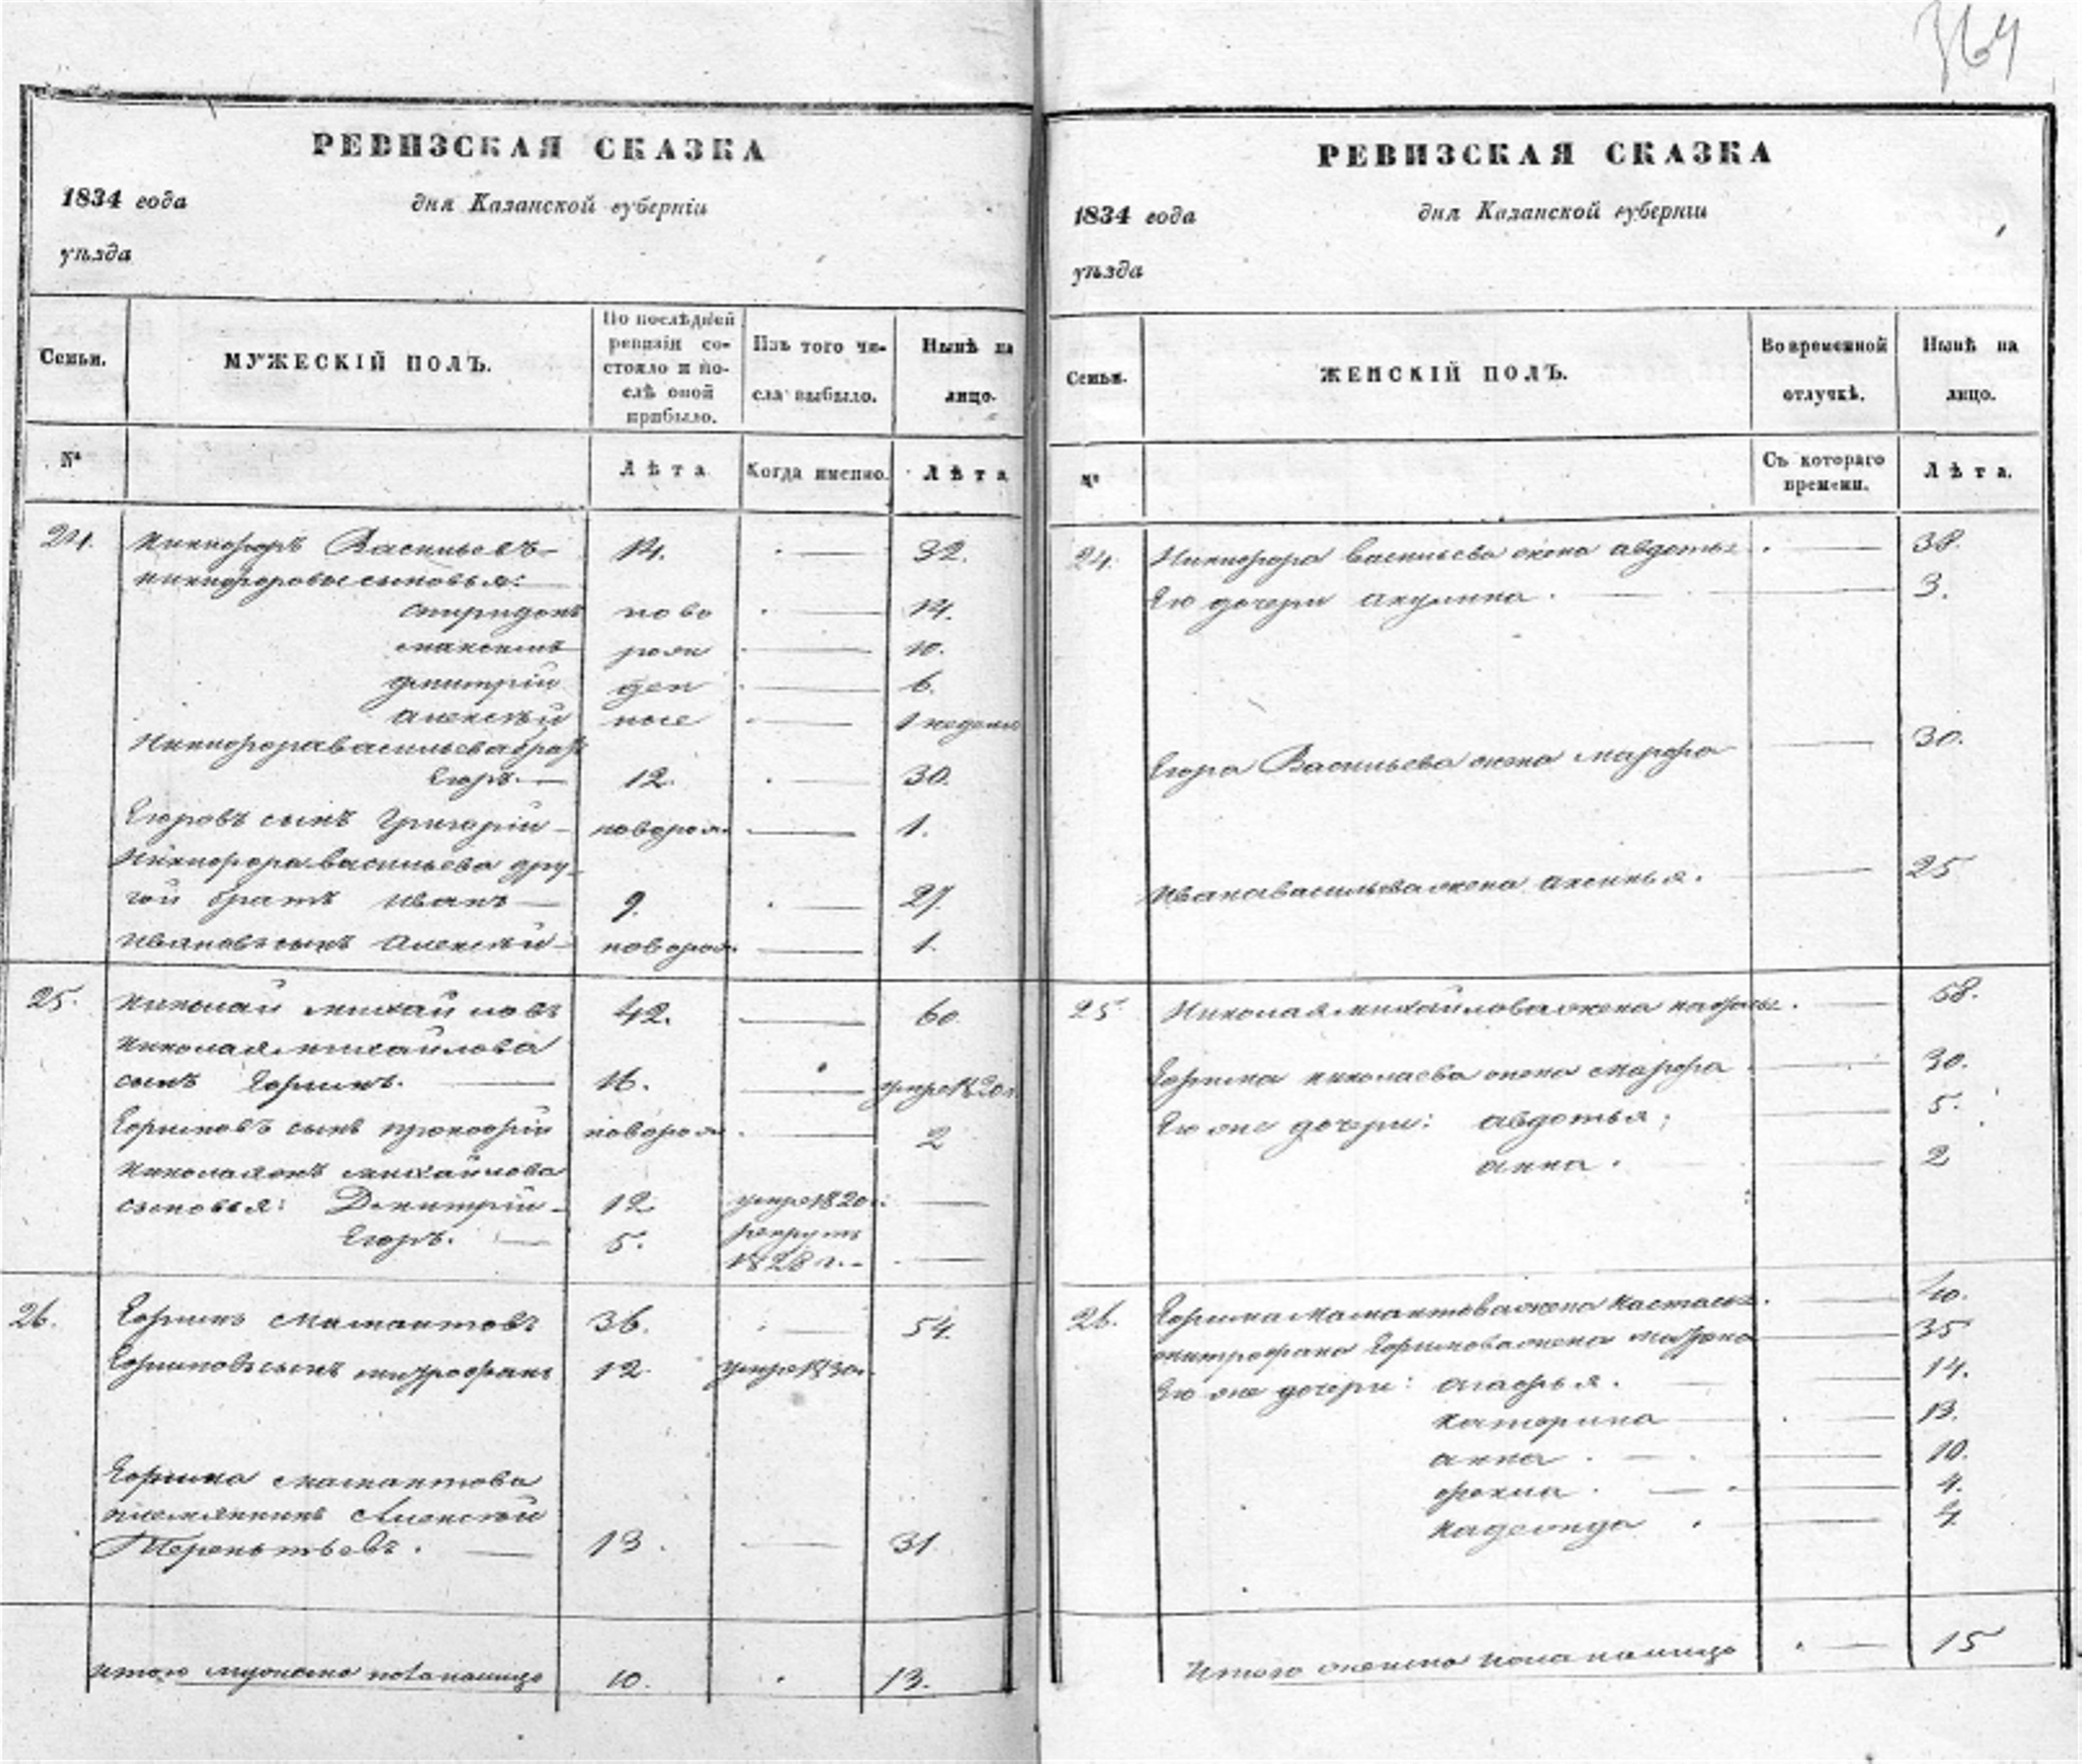 364
РЕВИЗСКАЯ СКАЗКА
1834 года дня Казанской губерніи
уѣзда
Семьи.
МУЖЕСКІЙ ПОЛЪ.
По послѣдней
ревизіи со-
стояло и по-
слѣ оной
прибыло.
Изъ того чи-
сла выбыло.
Нынѣ на
лицо.
№
Лѣта
Когда именно.
Лѣта
24. Никифоръ Васильевъ 14. 32.
никифоровы сыновья:
спиридонъ ново 14.
максимъ рож 10.
дмитрій ден 6.
алексѣй ные 1 недели
Никифора васильева братъ
Егоръ. 12. 30.
Егоровъ сынъ Григорій новорож. 1.
Никифора васильева дру-
гой братъ иванъ 9. 27.
ивановъ сынъ алексѣй новорож. 1.
25. николай михайловъ 42. 60
николая михайлова
сынъ Ефимъ. 16. умре 1820 г.
Ефимовъ сынъ прокофій новорож 2
николая михайлова
сыновья: Дмитрій 12 умре 1820 г:
Егоръ. 5. рекрутъ
1828 г.
26. Ефимъ мамантовъ 36. 54.
Ефимовъ сынъ митрофанъ 12. умре 1830 г.
Ефима мамантова
племянникъ Алексѣй
Терентьевъ. 13. 31.
итого мужеска пола налицо 10. 13.
РЕВИЗСКАЯ СКАЗКА
1834 года дня Казанской губерніи
уѣзда
Семьи.
ЖЕНСКІЙ ПОЛЪ.
Во временной
отлучкѣ.
Нынѣ на
лицо.
№
Съ котораго
времени.
Лѣта.
24. Никифора васильева жена авдотья 38.
Его дочери акулина. 3.
Егора Васильева жена марфа 30.
Ивана васильева жена аксинья. 25
25. Николая михайлова жена 58.
Ефима николаева жена марфа 30.
Его же дочери: авдотья; 5.
анна. 2
26. Ефима Мамантова жена настасья. 40.
митрофана Ефимова жена матрона 35
Его же дочери: агафья. 14.
катерина 13.
анна. 10.
фекла. 4.
надежда. 4.
Итого женска пола налицо 15